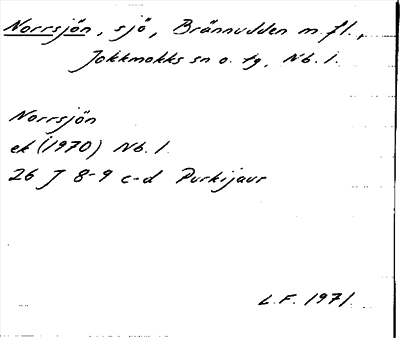 Norrsjön, sjö, Brännudden m. fl.,
Jokkmokks sn o. tg, Nb. l.
Norrsjön
ek (1970) Nb. l.
26 J 8-9 c-d Purkijaur
L.F. 1971.